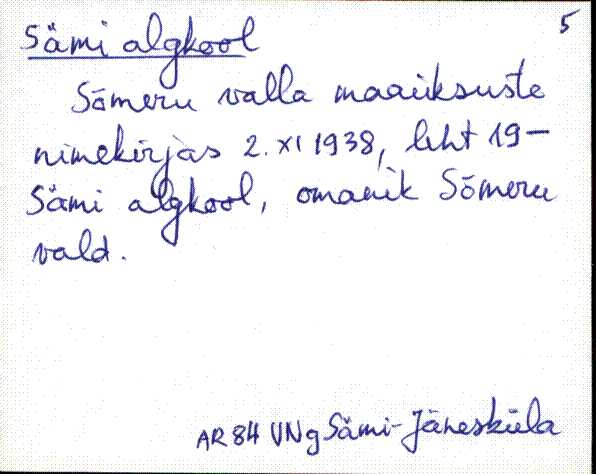 5
Sämi algkool
Sõmeru valla maaüksuste
nimekirjas 2. XI 1938, leht 19-
Sämi algkool, omanik Sõmeru
vald.
AR 84 VNg Sämi-Jänesküla